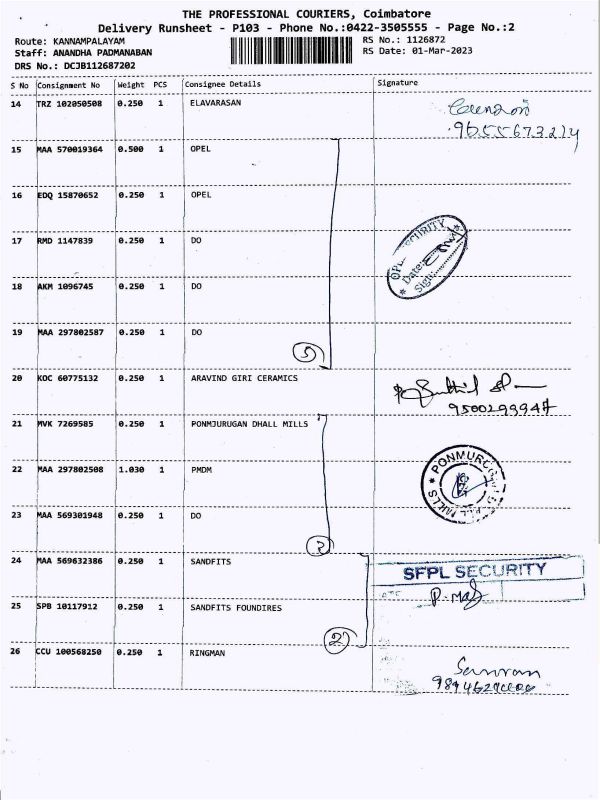 THE PROFESSIONAL COURIERS, Coimbatore
Delivery Runsheet - P103 - Phone No.:0422-3505555 - Page No.:2
Route: KANNAMPALAYAM
RS No.: 1126872
Staff: ANANDHA PADMANABAN
RS Date: 01-Mar-2023
DRS No.: DCJB112687202
S No Consignment No Weight PCS Consignee Details Signature
14 TRZ 102050508 0.250 1 ELAVARASAN
9655673214
15 MAA 570019364 0.500 1 OPEL
16 EDQ 15870652 0.250 1 OPEL
17 RMD 1147839 0.250 1 DO
OPEL SECURITY
Date:
Sign:
18 AKM 1096745 0.250 1 DO
19 MAA 297802587 0.250 1 DO
5
20 KOC 60775132 0.250 1 ARAVIND GIRI CERAMICS
9500299947
21 MVK 7269585 0.250 1 PONMJURUGAN DHALL MILLS
22 MAA 297802508 1.030 1 PMDM
23 MAA 569301948 0.250 1 DO
24 MAA 569632386 0.250 1 SANDFITS
SFPL SECURITY
25 SPB 10117912 0.250 1 SANDFITS FOUNDIRES
2
26 CCU 100568250 0.250 1 RINGMAN